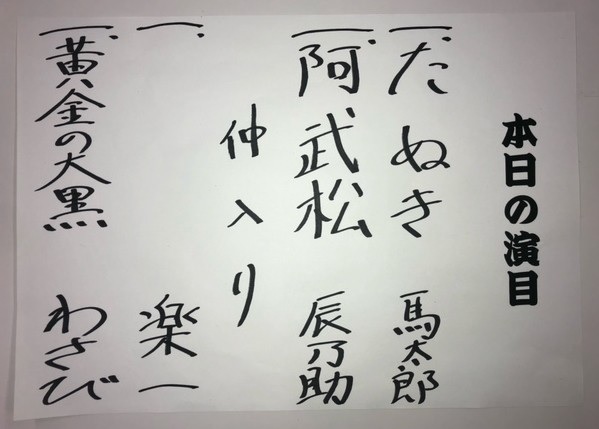 本日の演目
一、たぬき 馬太郎
一、阿武松 辰乃助
仲入り
一、 楽一
一、黄金の大黒 わさび